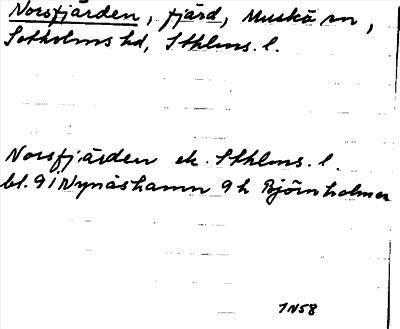 Norsfjärden, fjärd, Muskö sn,
Sotholms hd, Sthlms. l.
Norsfjärden ek. Sthlms. l.
bl. 9 i Nynäshamn 9 h Björnholmen
1N58